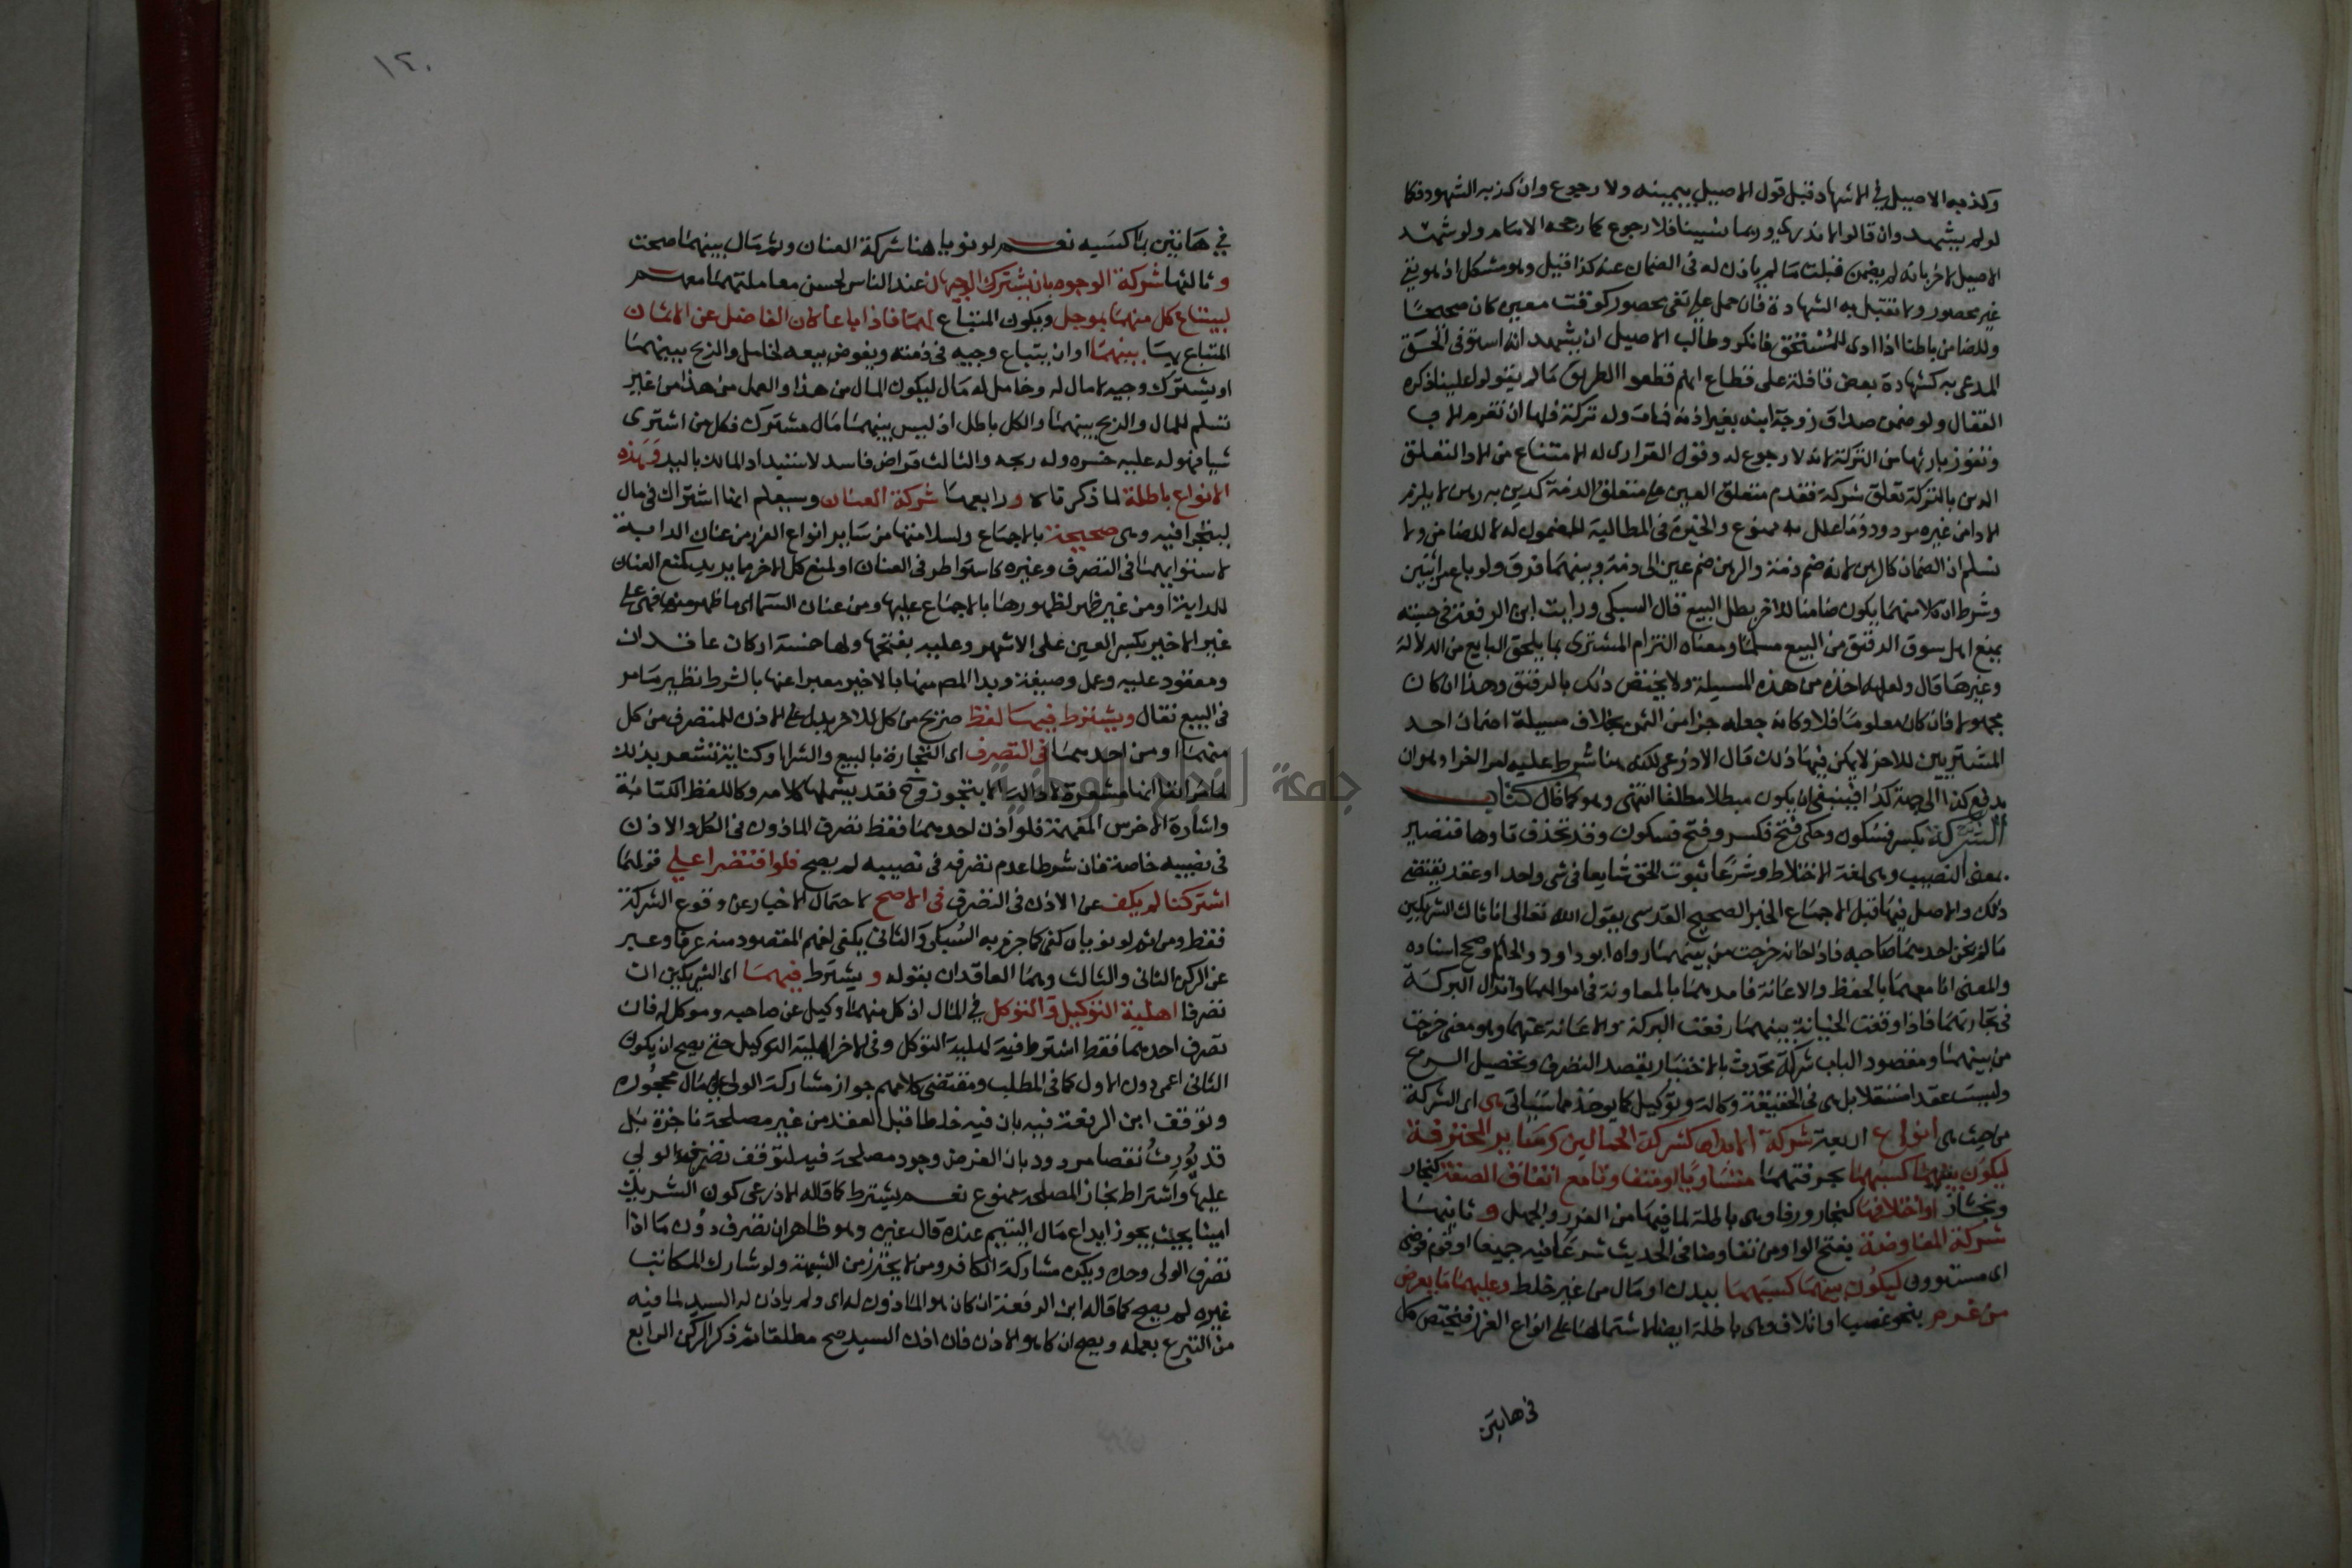 وكذبه الاصيل في الاشهاد قبل قول الاصيل بيمينه ولا رجوع وان كذبه الشهود فكما
لو لم يشهد وان قالوا لا ندري وربما نسينا فلا رجوع كما رجحه الامام ولو شهد
الاصيل لاخر بانه لم يضمن قبلت ما لم ياذن له في الضمان عنه كذا قيل وهو مشكل اذ هو نفي
غير محصور ولا تقبل به الشهادة فان حمل على نفي محصور كوقت معين كان صحيحا
وللضامن باطنا اذا ادى للمستحق فانكر وطالب الاصيل ان يشهد انه استوفى الحق
المدعى به كشهادة بعض قافلة على قطاع انهم قطعوا الطريق ما لم يقولوا علينا ذكره
القفال ولو ضمن صداق زوجة ابنه بغير اذنه فمات وله تركة فلها ان تغرم الاب
وتفوز بارثها من التركة لانه لا رجوع له وقول الفزاري له الامتناع من الاداء لتعلق
الدين بالتركة تعلق شركة فقدم متعلق العين على متعلق الذمة كدين به رهن لا يلزم
الادا من غيره مردود وما علل به ممنوع والخيرة في المطالبة للمضمون له لا للضامن ولا
نسلم ان الضمان كالرهن لانه ضم ذمة والرهن ضم عين الى ذمة وبينهما فرق ولو باع من اثنين
وشرط ان كلا منهما يكون ضامنا للاخر بطل البيع قال السبكي ورايت ابن الرفعة في حسبته
يمنع اهل سوق الرقيق من البيع مسلما ومعناه التزام المشتري بما يلحق البايع من الدلالة
وغيرها قال ولعله اخذه من هذه المسيلة ولا يختص ذلك بالرقيق وهذا ان كان
مجهولا فان كان معلوما فلا وكانه جعله جزا من الثمن بخلاف مسيلة ضمان احد
المشتريين للاخر لا يمكن فيها ذلك قال الاذرعي لكنه هنا شرط عليه امرا اخر وهو ان
يدفع كذا الى جهة كذا فينبغي ان يكون مبطلا مطلقا انتهى وهو كما قال كتاب
الشركة بكسر فسكون وحكي فتح فكسر وفتح فسكون وقد تحذف تاوها فتصير
بمعنى النصيب وهي لغة الاختلاط وشرعا ثبوت الحق شايعا في شي واحد او عقد يقتضي
ذلك والاصل فيها قبل الاجماع الخبر الصحيح القدسي يقول الله تعالى انا ثالث الشريكين
ما لم يخن احدهما صاحبه فاذا خانه خرجت من بينهما رواه ابو داود والحاكم وصحح اسناده
والمعنى انا معهما بالحفظ والاعانة فامدهما بالمعاونة في اموالهما وانزال البركة
في تجارتهما فاذا وقعت الخيانة بينهما رفعت البركة والاعانة عنهما وهو معنى خرجت
من بينهما ومقصود الباب شركة تحدث بالاختيار بقصد التصرف وتحصيل الربح
وليست عقدا مستقلا بل هي في الحقيقة وكالة وتوكيل كما يوخذ مما سياتي هي اي الشركة
من حيث هي انواع اربعة شركة الابدان كشركة الحمالين وساير المحترفة
ليكون بينهما كسبهما بحرفتهما متساويا او متفاوتا مع اتفاق الصنعة كنجار
ونجار او اختلافها كنجار ورفا وهي باطلة لما فيها من الغرر والجهل و ثانيها
شركة المفاوضة بفتح الواو من تفاوضا في الحديث شرعا فيه جميعا او قوم فوضى
اي مستوون ليكون بينهما كسبهما ببدن او مال من غير خلط وعليهما ما يعرض
من غرم بنحو غصب او اتلاف وهي باطلة ايضا لاشتمالها على انواع الغرر فيختص كل
في هاتين
١٢٠
في هاتين بما كسبه نعم لو نويا هنا شركة العنان وثم مال بينهما صحت
و ثالثها شركة الوجوه بان يشترك الوجيهان عند الناس لحسن معاملتهما معهم
ليبتاع كل منهما بموجل ويكون المبتاع لهما فاذا باعا كان الفاضل عن الاثمان
المبتاع بها بينهما او ان يبتاع وجيه في ذمته ويفوض بيعه لخامل والربح بينهما
او يشترك وجيه لا مال له وخامل له مال ليكون المال من هذا والعمل من هذا من غير
تسلم للمال والربح بينهما والكل باطل اذ ليس بينهما مال مشترك فكل من اشترى
شيا فهو له عليه خسره وله ربحه والثالث قراض فاسد لاستبداد المالك باليد وهذه
الانواع باطلة لما ذكرناه و رابعها شركة العنان وسيعلم انها اشتراك في مال
ليتجرا فيه وهي صحيحة بالاجماع ولسلامتها من ساير انواع الغرر من عنان الدابة
لاستوايهما في التصرف وغيره كاستوا طرفي العنان او لمنع كل الاخر مما يريد كمنع العنان
للدابة او من عن ظهر لظهورها بالاجماع عليها ومن عنان السما اي ما ظهر منها فهي على
غير الاخير بكسر العين على الاشهر وعليه بفتحها ولها خمسة اركان عاقدان
ومعقود عليه وعمل وصيغة وبدا المص منها بالاخير معبرا عنها بالشرط نظير ما مر
في البيع فقال ويشترط فيها لفظ صريح من كل للاخر يدل على الاذن للمتصرف من كل
منهما او من احدهما في التصرف اي التجارة بالبيع والشرا او كناية تشعر بذلك
لما مر انها مشعرة لا دالة الا بتجوز وح فقد يشملها كلامه وكاللفظ الكتابة
واشارة الاخرس المفهمة فلو اذن احدهما فقط تصرف الماذون في الكل والاذن
في نصيبه خاصة فان شرطا عدم تصرفه في نصيبه لم يصح فلو اقتصرا على قولهما
اشتركنا لم يكف عن الاذن في التصرف في الاصح لاحتمال الاخبار عن وقوع الشركة
فقط ومن ثم لو نوياه كفى كما جزم به السبكي والثاني يكفي لفهم المقصود منه عرفا وعبر
عن الركن الثاني والثالث وهما العاقدان بقوله و يشترط فيهما اي الشريكين ان
تصرفا اهلية التوكيل والتوكل في المال اذ كل منهما وكيل عن صاحبه وموكل له فان
تصرف احدهما فقط اشترط فيه اهلية التوكل وفي الاخر اهلية التوكيل حتى يصح ان يكون
الثاني اعمى دون الاول كما في المطلب ومقتضى كلامهم جواز مشاركة الولي في مال محجوره
وتوقف ابن الرفعة فيه بان فيه خلطا قبل العقد من غير مصلحة ناجزة بل
قد يورث نقصا مردود بان الفرض وجود مصلحة فيه لتوقف تصرف الولي
عليها واشتراط نجاز المصلحة ممنوع نعم يشترط كما قاله الاذرعي كون الشريك
امينا بحيث يجوز ايداع مال اليتيم عنده قال غيره وهو ظاهر ان تصرف دون ما اذا
تصرف الولي وحده ويكره مشاركة الكافر ومن لا يحترز من الشبهة ولو شارك المكاتب
غيره لم يصح كما قاله ابن الرفعة ان كان هو الماذون له اي ولم ياذن له السيد لما فيه
من التبرع بعمله ويصح ان كان هو الاذن فان اذن السيد صح مطلقا ثم ذكر الركن الرابع
جامعة النجاح الوطنية